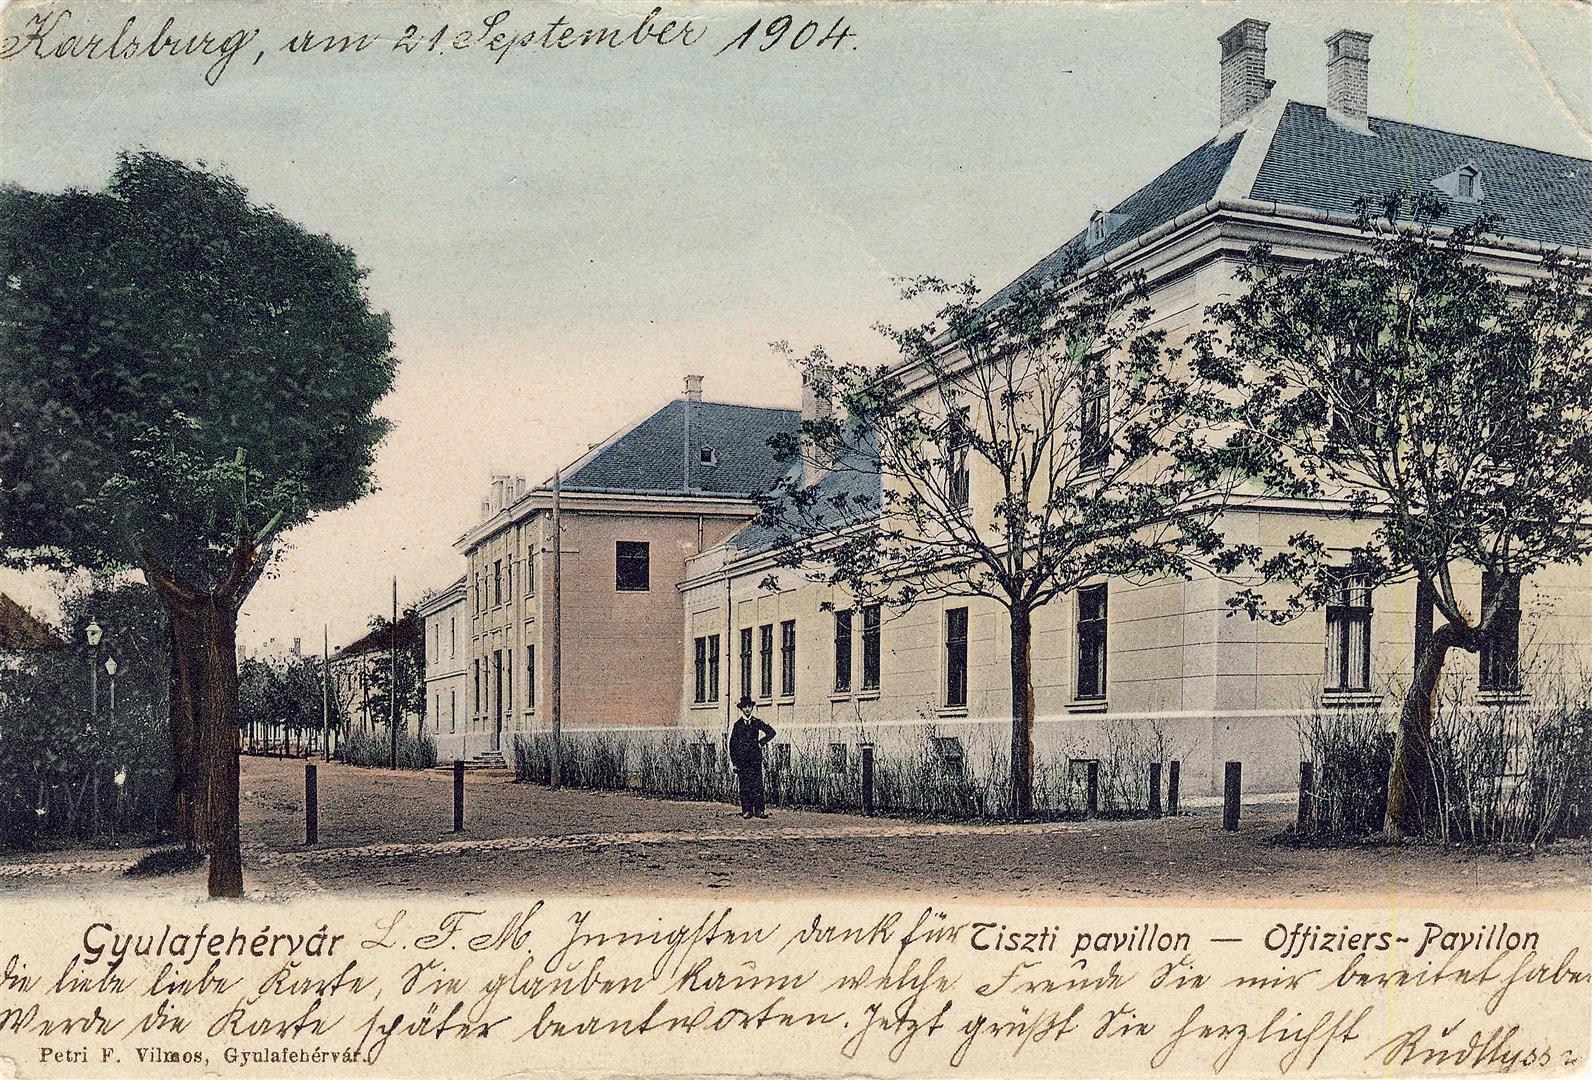 Karlsburg, am 21. September 1904.
Gyulafehérvár L. F. M. Innigsten dank für Tiszti pavillon — Offiziers-Pavillon
die liebe liebe Karte, Sie glauben kaum welche Freude Sie mir bereitet habe
Werde die Karte später beantworten. Jetzt grüßt Sie herzlichst
Petri F. Vilmos, Gyulafehérvár.